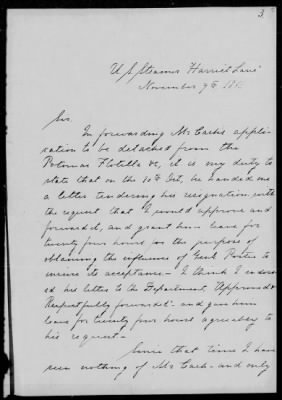 3
U S Steamer Harriet Lane
November 9th
Sir
In forwarding Mr Cash's appli-
cation to be detached from the
Potomac Flotilla &c, it is my duty to
state that on the 30th Oct, he handed me
a letter tendering his resignation, with
the request that I would approve and
forward, and grant him leave for
twenty four hours for the purpose of
obtaining the influence of Genl Porter to
insure its acceptance - I think I endors-
ed his letter to the Department, Approved &
Respectfully forwarded - and gave him
leave for twenty four hours agreeably to
his request -
Since that time I have
seen nothing of Mr Cash - and only